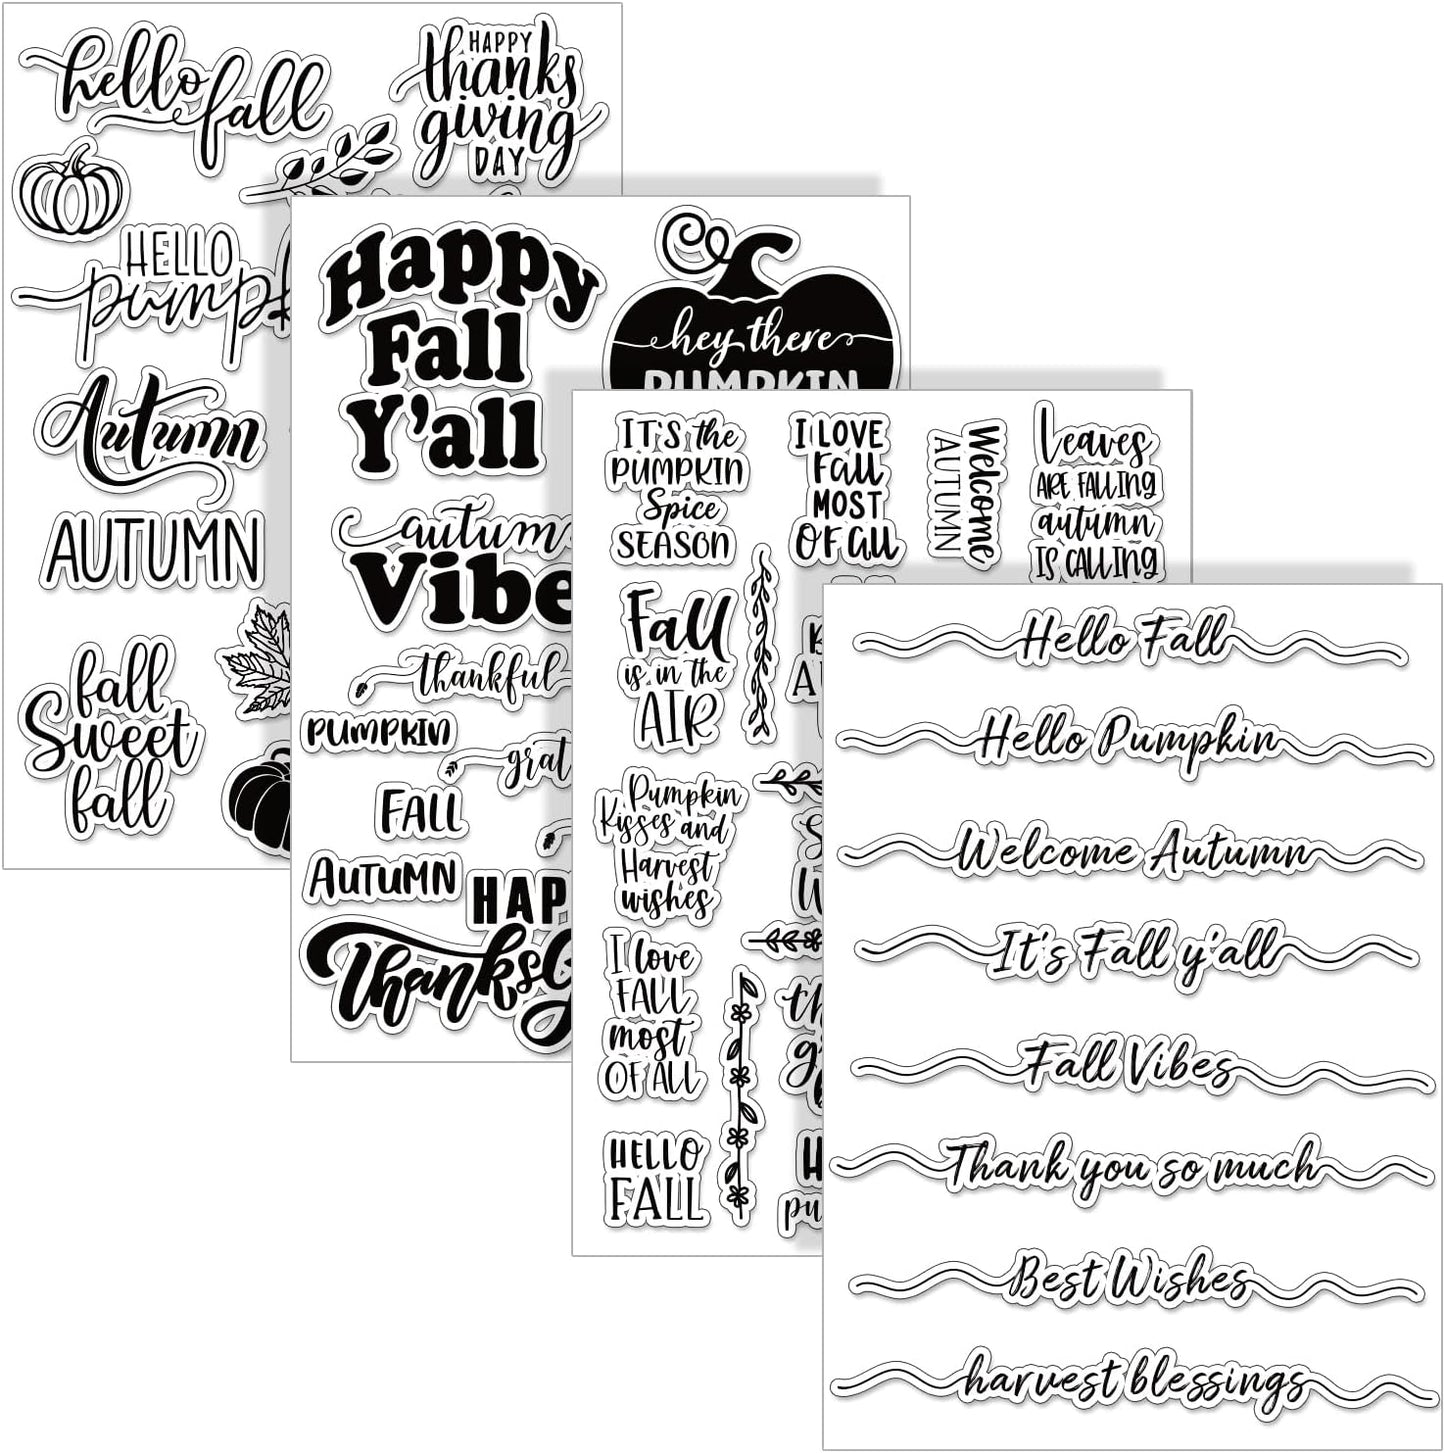 hello fall
HAPPY
thanks
giving
DAY
HELLO
Autumn
AUTUMN
fall
Sweet
fall
Happy
Fall
Y'all
hey there
PUMPKIN
Vibe
thankful
PUMPKIN
FALL
AUTUMN
IT'S the
PUMPKIN
Spice
SEASON
I LOVE
Fall
MOST
OF all
Welcome
AUTUMN
Leaves
ARE FALLING
autumn
IS CALLING
Fall
is in the
AIR
Pumpkin
Kisses and
Harvest
wishes
I love
FALL
most
OF ALL
HELLO
FALL
Hello Fall
Hello Pumpkin
Welcome Autumn
It's Fall y'all
Fall Vibes
Thank you so much
Best Wishes
harvest blessings